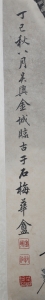 丁巳秋八月吳興金城臨古于石梅華盦